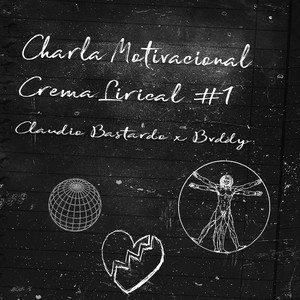 Charla Motivacional
Crema Lirical #1
Claudio Bastardo x Bvddy